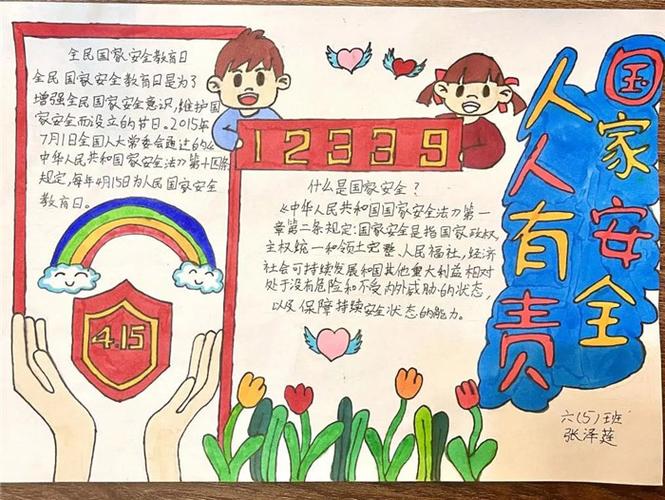 全民国家安全教育日
全民国家安全教育日是为了
增强全民国家安全意识,维护国
家安全而设立的节日。2015年
7月1日全国人大常委会通过的《
中华人民共和国国家安全法》第十四条
规定,每年4月15日为人民国家安全
教育日。
4.15
12339
什么是国家安全?
《中华人民共和国国家安全法》第一
章第二条规定:国家安全是指国家政权,
主权,统一和领土完整、人民福祉,经济
社会可持续发展和国其他重大利益相对
处于没有危险和不受内外威胁的状态,
以及保障持续安全状态的能力。
国家安全
人人有责
六(5)班
张泽莲